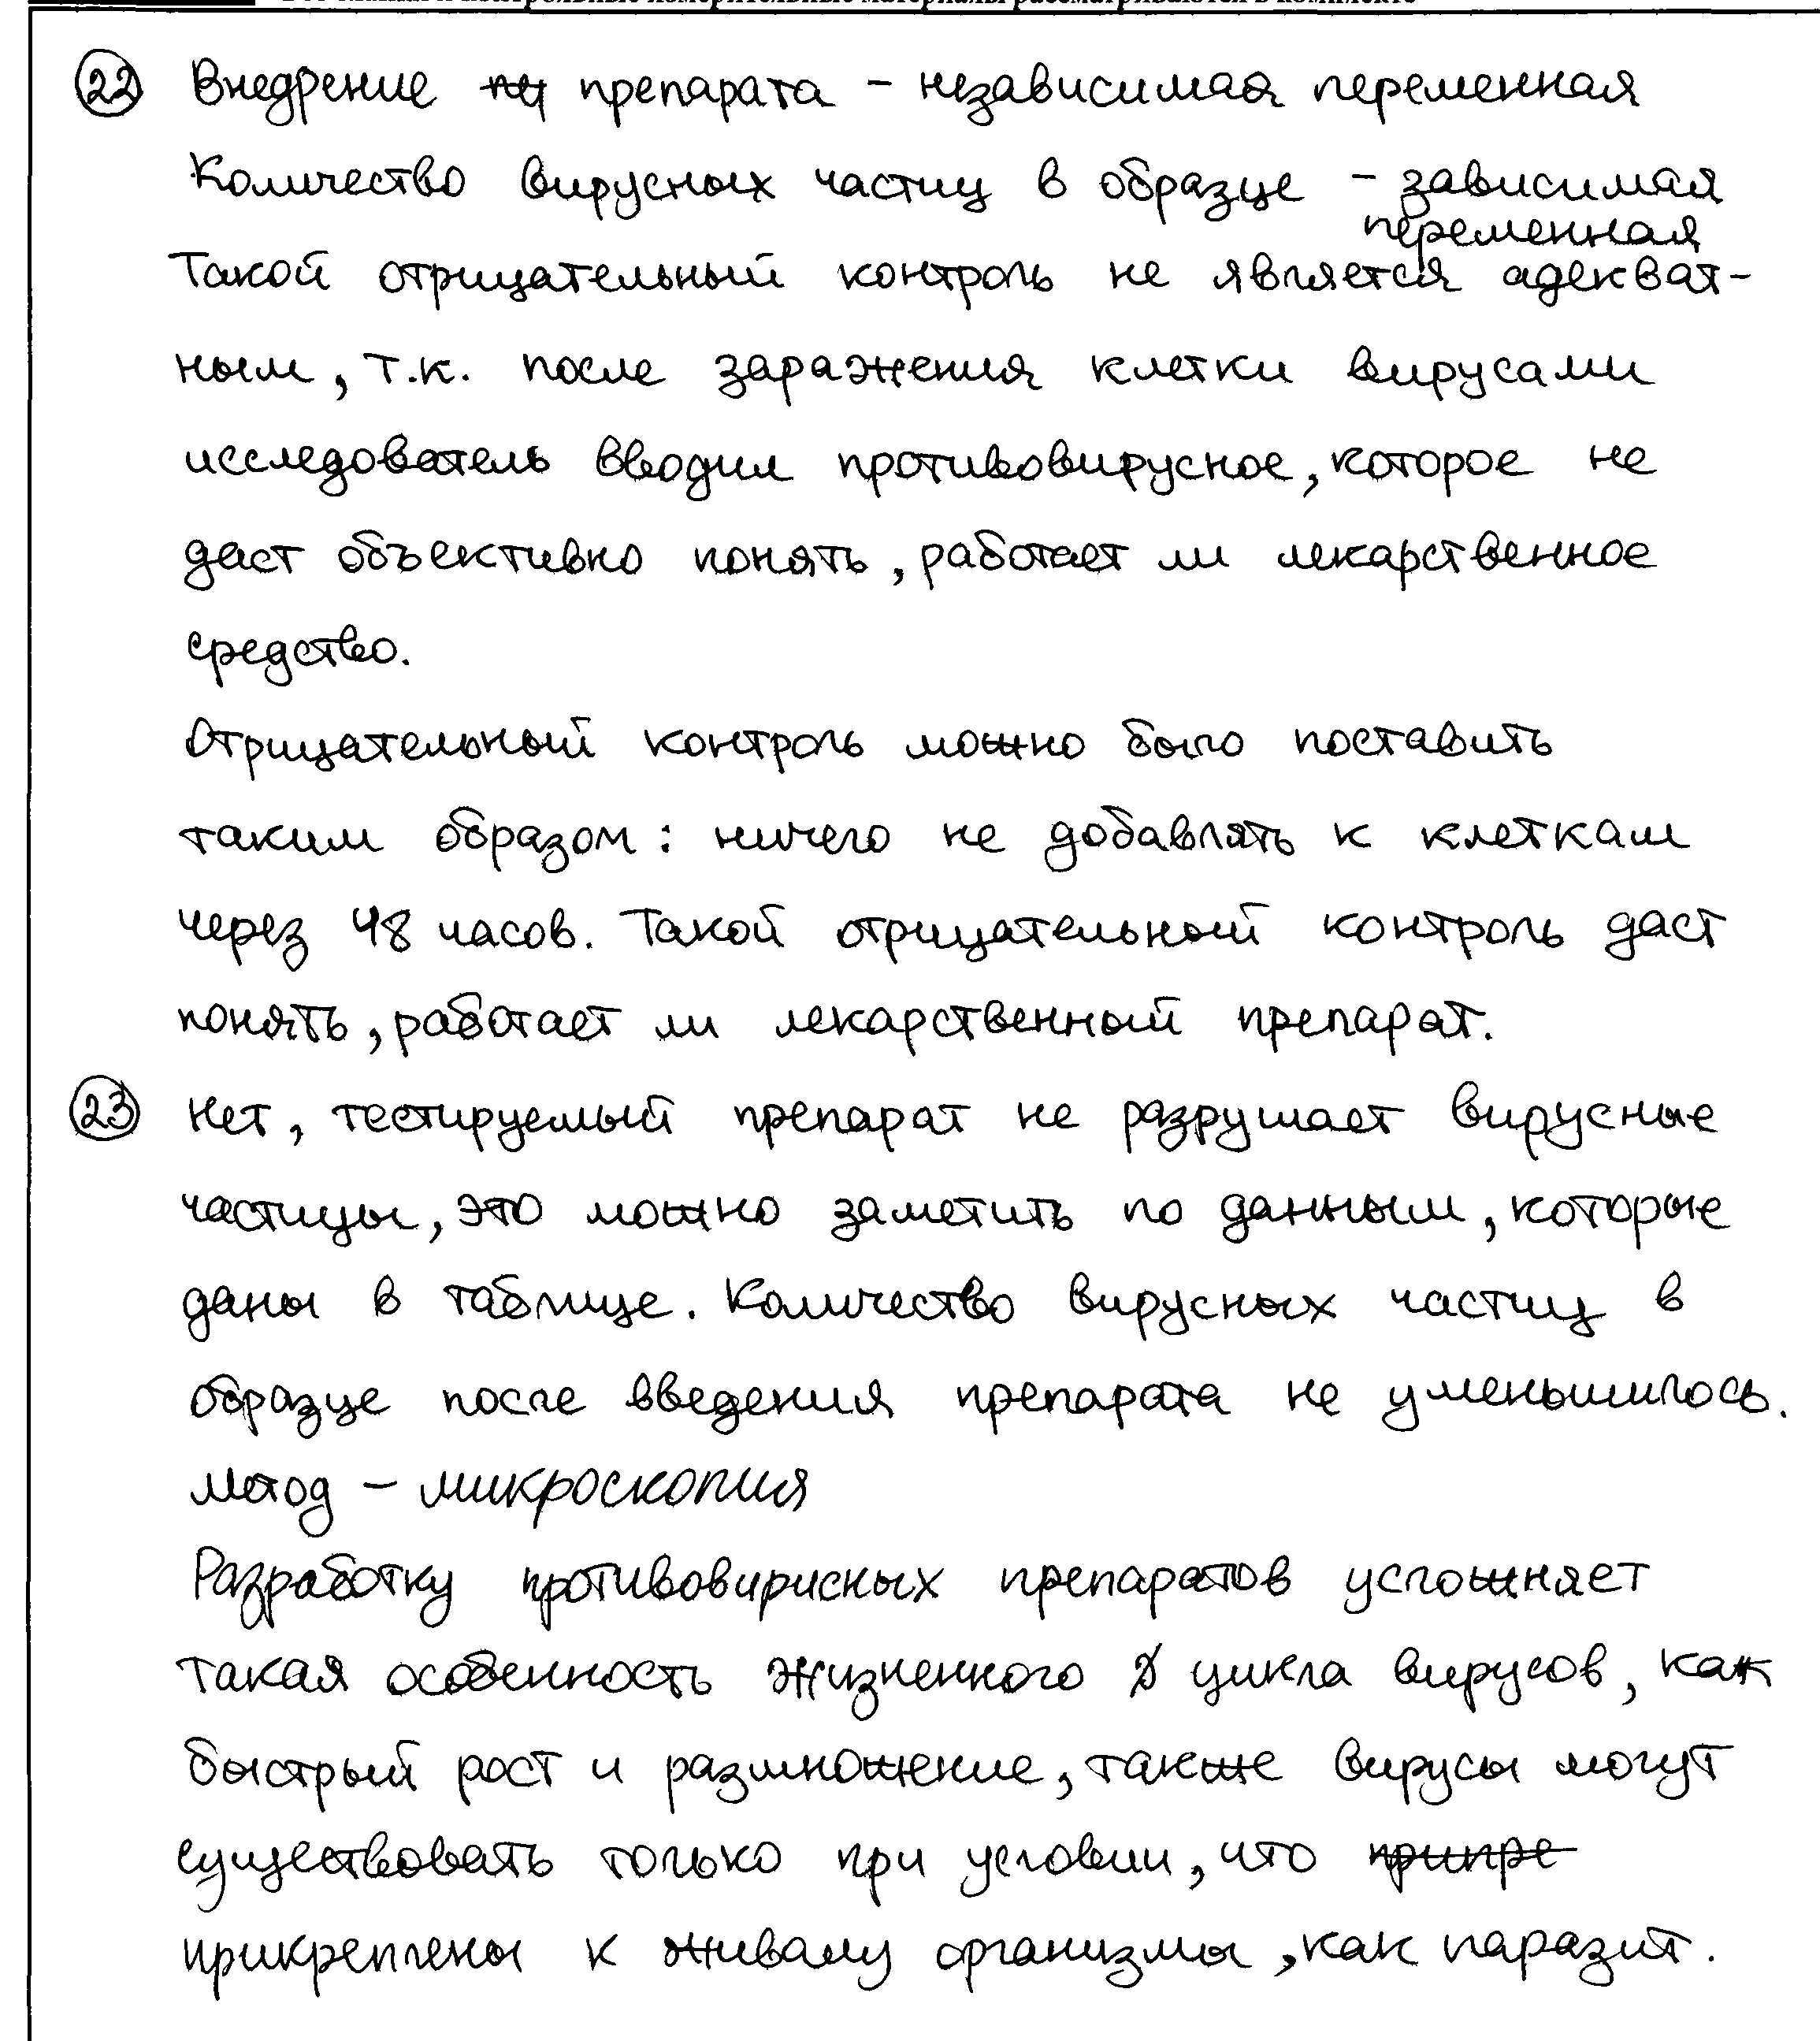 22 Внедрение препарата – независимая переменная
Количество вирусных частиц в образце – зависимая
переменная
Такой отрицательный контроль не является адекват-
ным, т.к. после заражения клетки вирусами
исследователь вводил противовирусное, которое не
даст объективно понять, работает ли лекарственное
средство.
Отрицательный контроль можно было поставить
таким образом: ничего не добавлять к клеткам
через 48 часов. Такой отрицательный контроль даст
понять, работает ли лекарственный препарат.
23 Нет, тестируемый препарат не разрушает вирусные
частицы, это можно заметить по данным, которые
даны в таблице. Количество вирусных частиц в
образце после введения препарата не уменьшилось.
Метод – микроскопия
Разработку противовирисных препаратов усложняет
такая особенность жизненного цикла вирусов, как
быстрый рост и размножение, также вирусы могут
существовать только при условии, что припре
прикреплены к живаму организмы, как паразит.